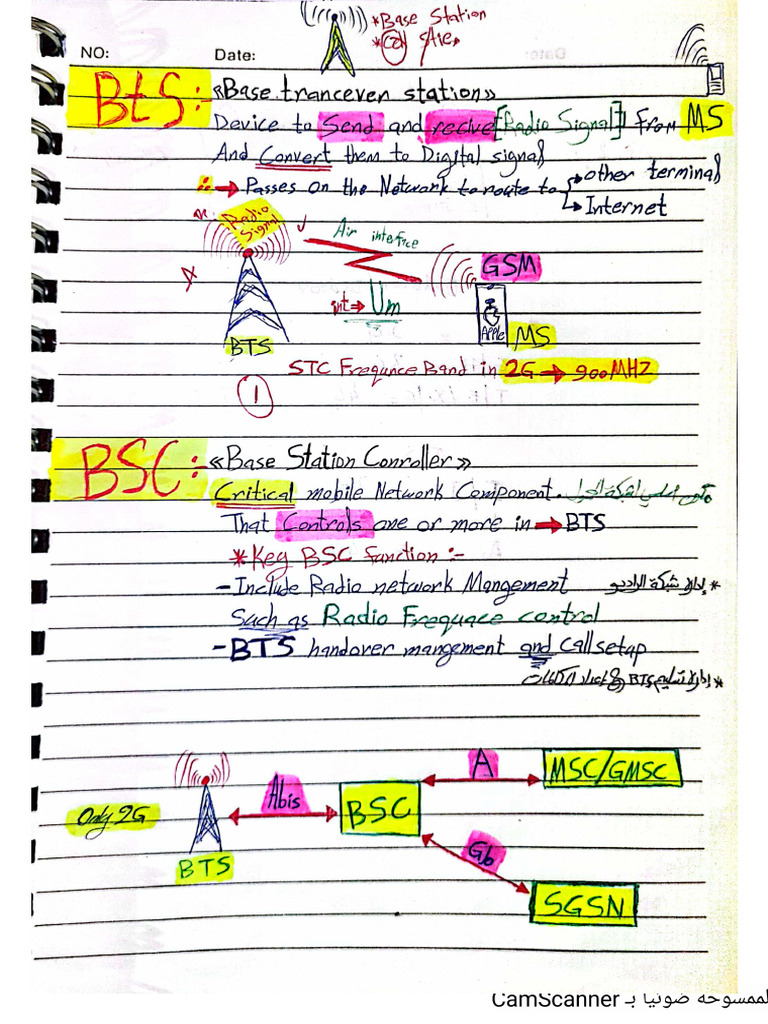 *Base Station
*Cell Site
NO:
Date:
BtS:- «Base tranceven station»
Device to Send and recive [Radio Signal] From MS
And Convert them to Digital signal
∴ → Passes on the Network to route to → other terminal
→ Internet
Radio Signal
Air interfce
GSM
int → Um
Apple
MS
BTS
STC Frequnce Band in 2G → 900MHZ
1
BSC:- «Base Station Conroller»
Critical mobile Network Component.
That Controls one or more in → BTS
*Key BSC function :-
- Include Radio network Mangement
* إدارة شبكة الراديو
Such as Radio Frequace control
- BTS handover mangement and Call setup
* إدارة تسليم BTS و إعداد المكالمات
Only 2G
BTS
Abis
BSC
A
MSC/GMSC
Gb
SGSN
الممسوحه ضوئيا بـ CamScanner